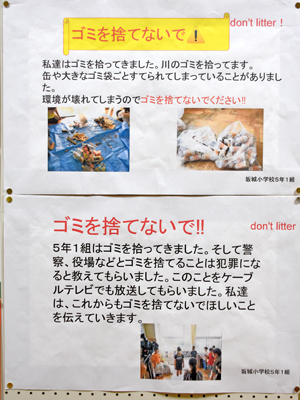 don't litter！
ゴミを捨てないで⚠
私達はゴミを拾ってきました。川のゴミを拾ってます。
缶や大きなゴミ袋ごとすてられてしまっていることがありまし
た。
環境が壊れてしまうのでゴミを捨てないでください!!
坂城小学校5年1組
ゴミを捨てないで!!
don't litter
5年1組はゴミを拾ってきました。そして警
察、役場などとゴミを捨てることは犯罪にな
ると教えてもらいました。このことをケーブ
ルテレビでも放送してもらいました。私達
は、これからもゴミを捨てないでほしいこと
を伝えていきます。
坂城小学校5年1組